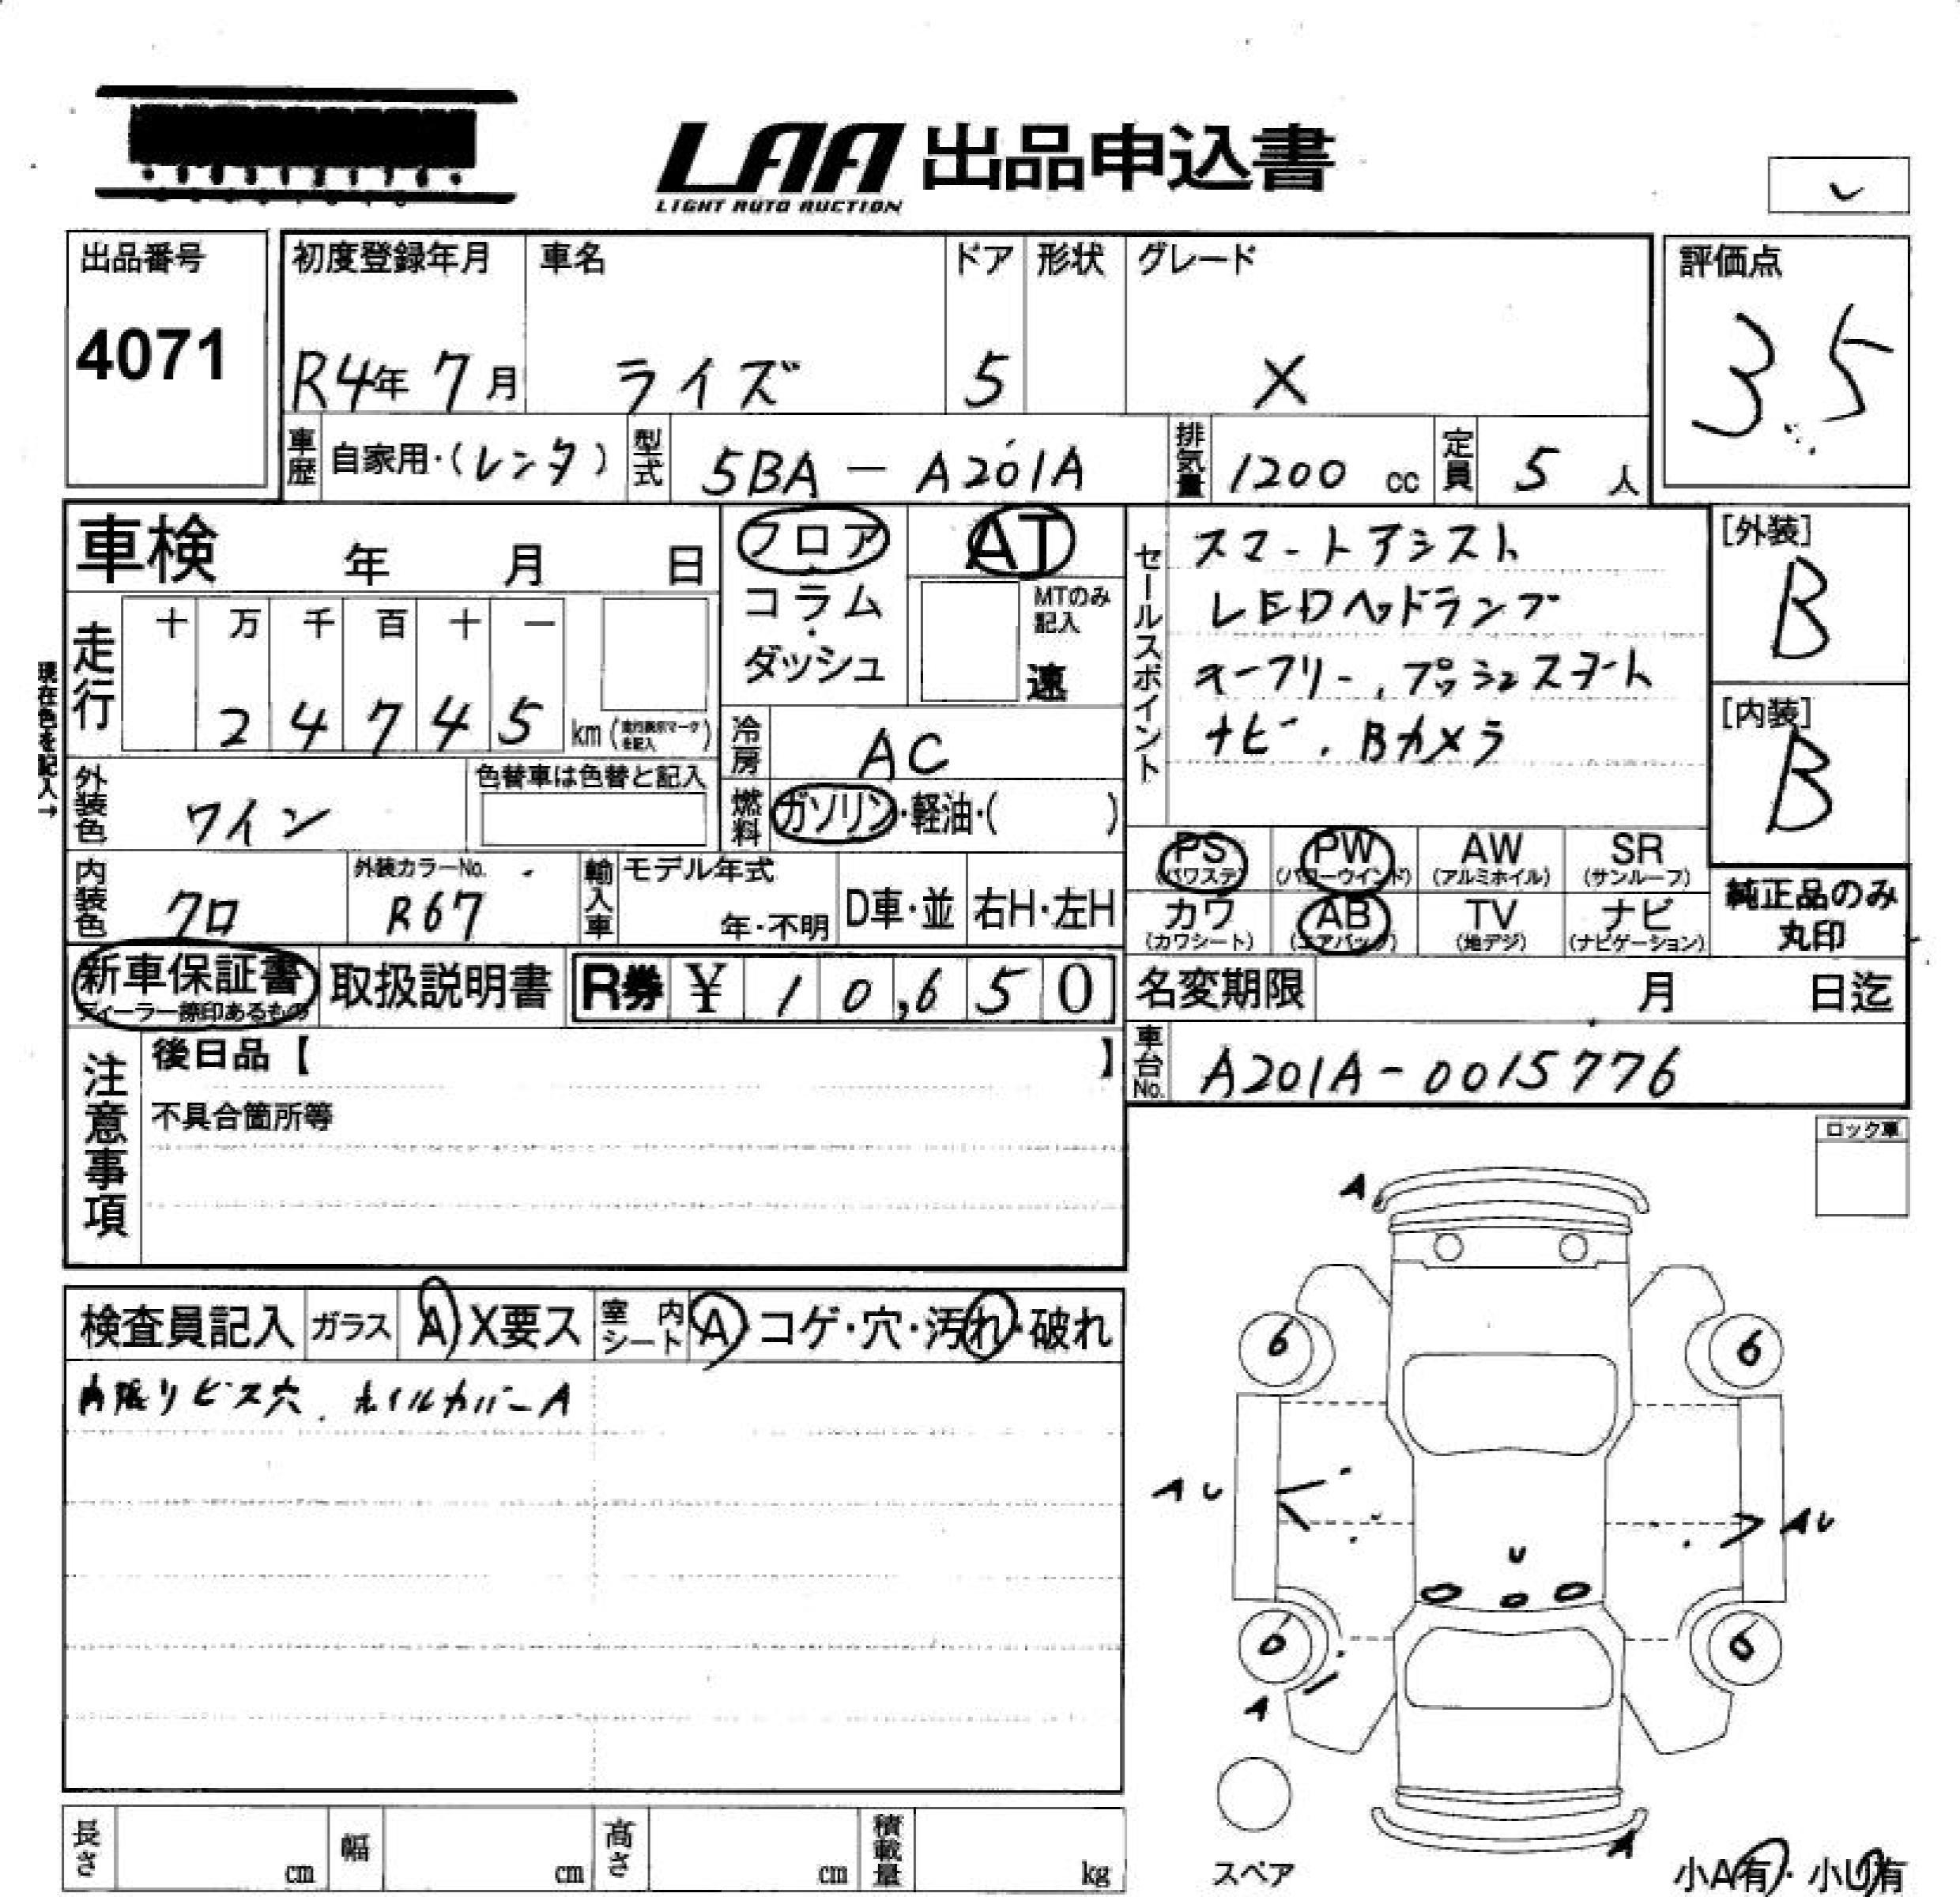 LAA 出品申込書
LIGHT AUTO AUCTION
出品番号
4071
初度登録年月
R4年 7月
車名
ライズ
ドア
5
形状
グレード
X
評価点
3.5
車歴 自家用・(レンタ)
型式 5BA-A201A
排気量 1200 cc
定員 5 人
車検 年 月 日
フロア
コラム
・
ダッシュ
AT
MTのみ
記入
速
セールスポイント
スマートアシスト
LEDヘッドランプ
キーフリー、プッシュスタート
ナビ、Bカメラ
[外装]
B
[内装]
B
現在色を記入→
走行
十 万 千 百 十 一
2 4 7 4 5 km (走行表示マークを記入)
冷房 AC
燃料 ガソリン・軽油・( )
外装色 ワイン
色替車は色替と記入
内装色 クロ
外装カラーNo.
R67
輸入車
モデル年式
年・不明
D車・並
右H・左H
PS
(パワステ)
PW
(パワーウインド)
AW
(アルミホイル)
SR
(サンルーフ)
カワ
(カワシート)
AB
(エアバック)
TV
(地デジ)
ナビ
(ナビゲーション)
純正品のみ
丸印
新車保証書
ディーラー捺印あるもの
取扱説明書
R券 ¥ 10,650
名変期限 月 日迄
車台No. A201A-0015776
注意事項
後日品【 】
不具合箇所等
ロック車
検査員記入
ガラス A X要ス
室内シート A・コゲ・穴・汚れ・破れ
内張りビス穴、ホイルカバーA
A
6
6
AU
AU
U
6
6
A
A
スペア
小A有・小U有
長さ cm
幅 cm
高さ cm
積載量 kg